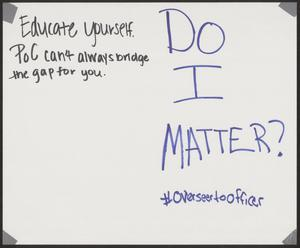 Educate yourself.
PoC can't always bridge
the gap for you.
DO
I
MATTER?
#overseertoofficer